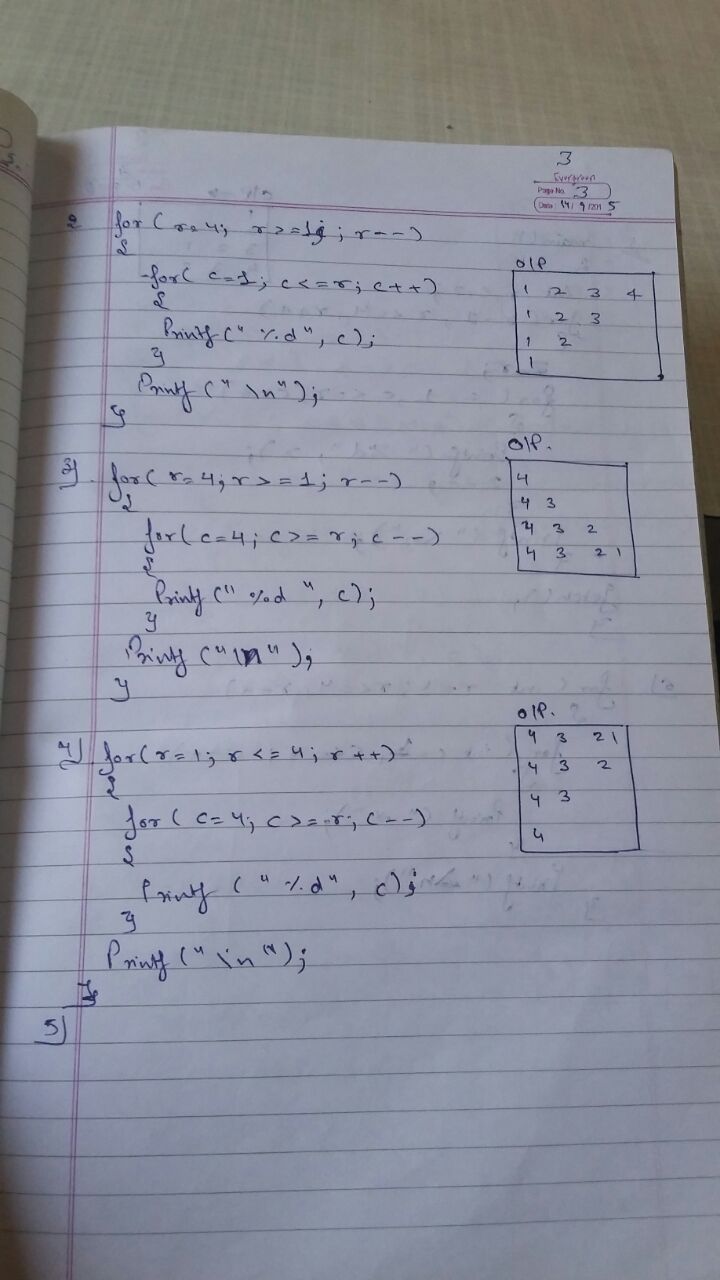 3
Evergreen
Page No. 3
Date: 14/9/2015
2 for(r=4; r>=1; r--)
{
for(c=1; c<=r; c++)
{
Printf("%d", c);
}
Printf("\n");
}
O/P
1 2 3 4
1 2 3
1 2
1
3) for(r=4; r>=1; r--)
{
for(c=4; c>=r; c--)
{
Printf("%d", c);
}
Printf("\n");
}
O/P.
4
4 3
4 3 2
4 3 2 1
4) for(r=1; r<=4; r++)
{
for(c=4; c>=r; c--)
{
Printf("%d", c);
}
Printf("\n");
}
O/P.
4 3 2 1
4 3 2
4 3
4
5)